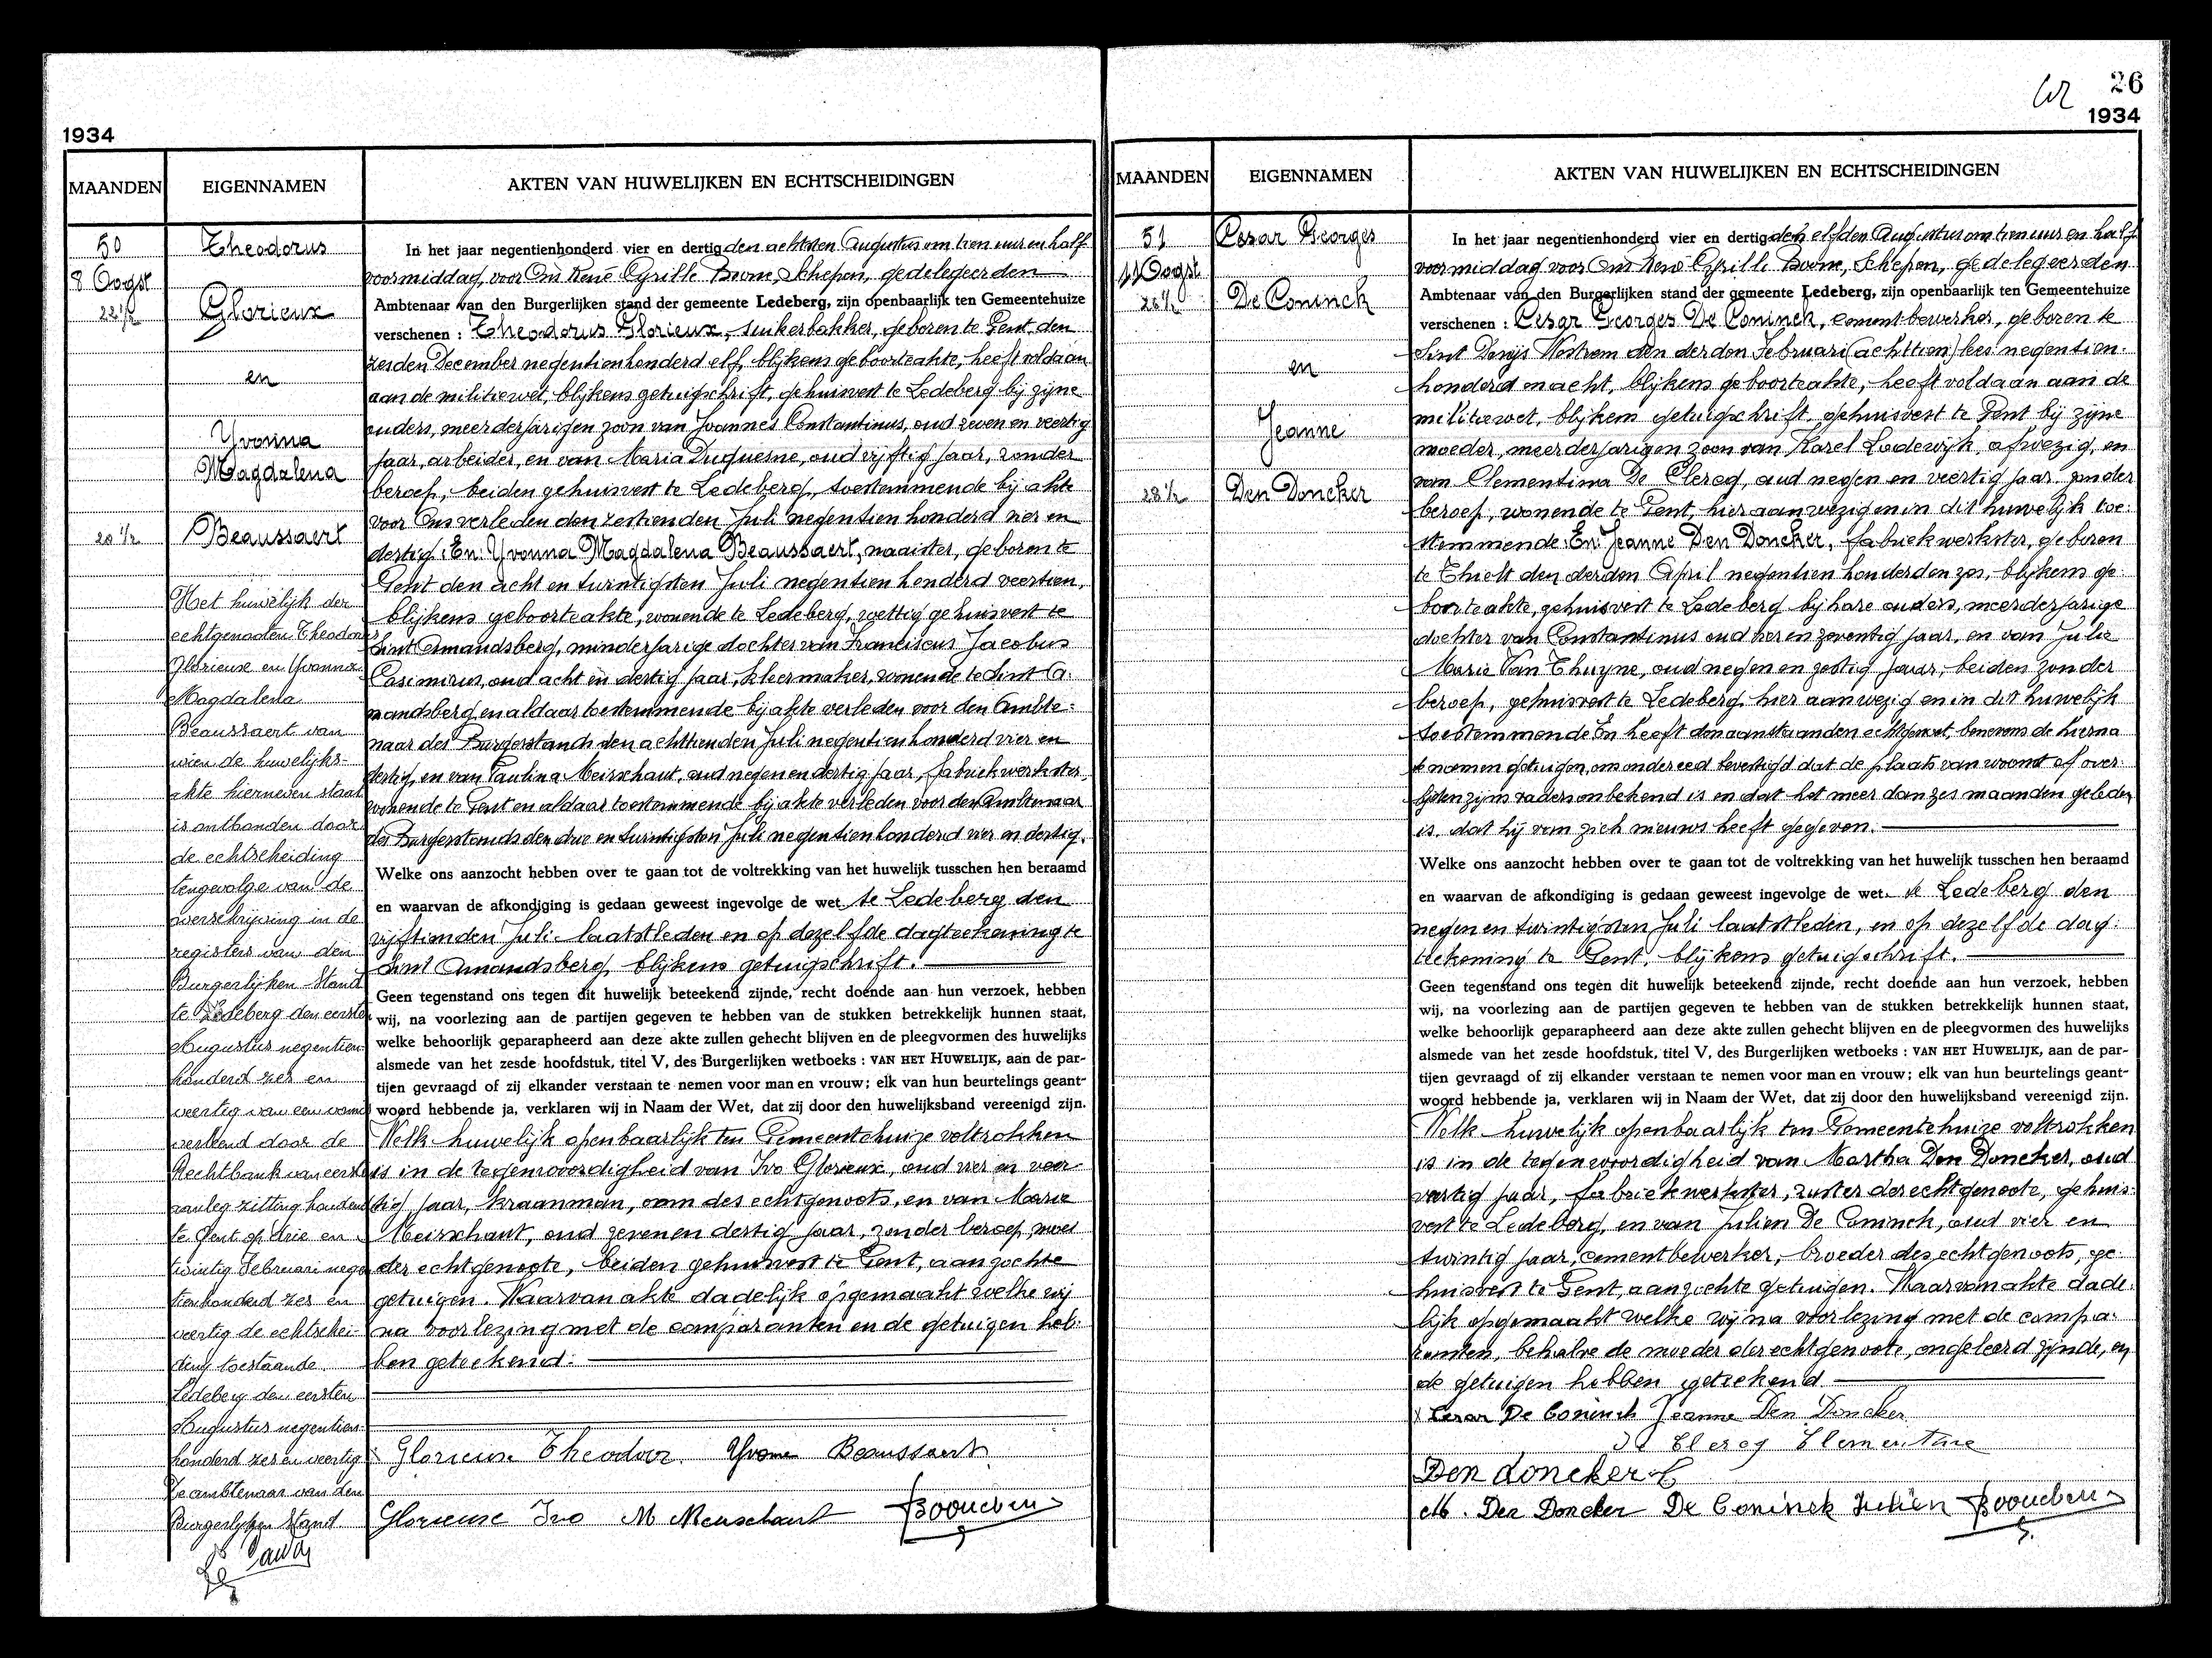 1934
MAANDEN
EIGENNAMEN
AKTEN VAN HUWELIJKEN EN ECHTSCHEIDINGEN
50
8 Oogst
22 1/2
20 1/2
Theodorus
Glorieux
en
Yvonna
Magdalena
Beaussaert
Het huwelijk der
echtgenooten Theodorus
Glorieux en Yvonna
Magdalena
Beaussaert van
wien de huwelijks-
akte hierneven staat
is ontbonden door
de echtscheiding
tengevolge van de
overschrijving in de
registers van den
Burgerlijken Stand
te Ledeberg den eersten
Augustus negentien
honderd zes en
veertig van een vonnis
verleend door de
Rechtbank van eersten
aanleg zitting houdend
te Gent op drie en
twintig Februari negen
tienhonderd zes en
veertig de echtschei-
ding toestaande.
Ledeberg den eersten
Augustus negentien-
honderd zes en veertig
De ambtenaar van den
Burgerlijken Stand.
In het jaar negentienhonderd vier en dertig den achtsten Augustus om tien uur en half
voormiddag, voor Ons René Cyrille Boone, Schepen, gedelegeerden
Ambtenaar van den Burgerlijken stand der gemeente Ledeberg, zijn openbaarlijk ten Gemeentehuize
verschenen : Theodorus Glorieux, suikerbakker, geboren te Gent den
zesden December negentienhonderd elf, blijkens geboorteakte, heeft voldaan
aan de militiewet, blijkens getuigschrift, gehuisvest te Ledeberg bij zijne
ouders, meerderjarigen zoon van Joannes Constantinus, oud zeven en veertig
jaar, arbeider, en van Maria Duquesne, oud vijftig jaar, zonder
beroep, beiden gehuisvest te Ledeberg, toestemmende bij akte
voor Ons verleden den zestienden Juli negentien honderd vier en
dertig. En: Yvonna Magdalena Beaussaert, naaister, geboren te
Gent den acht en twintigsten Juli negentien honderd veertien,
blijkens geboorteakte, wonende te Ledeberg, wettig gehuisvest te
Sint Amandsberg, minderjarige dochter van Franciscus Jacobus
Casimirus, oud acht en dertig jaar, kleermaker, wonende te Sint A-
mandsberg en aldaar toestemmende bij akte verleden voor den Ambte-
naar des Burgerstands den achttienden Juli negentienhonderd vier en
dertig, en van Paulina Meirschaut, oud negen en dertig jaar, fabriekwerkster,
wonende te Gent en aldaar toestemmende bij akte verleden voor den Ambtenaar
des Burgerstands den drie en twintigsten Juli negentienhonderd vier en dertig.
Welke ons aanzocht hebben over te gaan tot de voltrekking van het huwelijk tusschen hen beraamd
en waarvan de afkondiging is gedaan geweest ingevolge de wet te Ledeberg den
vijftienden Juli laatstleden en op dezelfde dagteekening te
Sint Amandsberg, blijkens getuigschrift.
Geen tegenstand ons tegen dit huwelijk beteekend zijnde, recht doende aan hun verzoek, hebben
wij, na voorlezing aan de partijen gegeven te hebben van de stukken betrekkelijk hunnen staat,
welke behoorlijk geparapheerd aan deze akte zullen gehecht blijven en de pleegvormen des huwelijks
alsmede van het zesde hoofdstuk, titel V, des Burgerlijken wetboeks : VAN HET HUWELIJK, aan de par-
tijen gevraagd of zij elkander verstaan te nemen voor man en vrouw; elk van hun beurtelings geant-
woord hebbende ja, verklaren wij in Naam der Wet, dat zij door den huwelijksband vereenigd zijn.
Welk huwelijk openbaarlijk ten Gemeentehuize voltrokken
is in de tegenwoordigheid van Ivo Glorieux, oud vier en veer-
tig jaar, kraanman, oom des echtgenoots, en van Marie
Meirschaut, oud zeven en dertig jaar, zonder beroep, moei
der echtgenoote, beiden gehuisvest te Gent, aanzochte
getuigen. Waarvan akte dadelijk opgemaakt welke wij
na voorlezing met de comparanten en de getuigen heb-
ben geteekend.
Glorieux Theodoor. Yvonne Beaussaert
Glorieux Ivo M Meirschaut
26
1934
MAANDEN
EIGENNAMEN
AKTEN VAN HUWELIJKEN EN ECHTSCHEIDINGEN
51
11 Oogst
26 1/2
28 1/2
Cesar Georges
De Coninck
en
Jeanne
Den Doncker
In het jaar negentienhonderd vier en dertig den elfden Augustus om tien uur en half
voormiddag voor Ons René Cyrille Boone, Schepen, gedelegeerden
Ambtenaar van den Burgerlijken stand der gemeente Ledeberg, zijn openbaarlijk ten Gemeentehuize
verschenen : Cesar Georges De Coninck, cementbewerker, geboren te
Sint Denijs Westrem den derden Februari (achttien) lees negentien-
honderd en acht, blijkens geboorteakte, heeft voldaan aan de
militiewet, blijkens getuigschrift, gehuisvest te Gent bij zijne
moeder, meerderjarigen zoon van Karel Lodewijk, afwezig, en
van Clementina De Clercq, oud negen en veertig jaar, zonder
beroep, wonende te Gent, hier aanwezig en in dit huwelijk toe-
stemmende. En: Jeanne Den Doncker, fabriekwerkster, geboren
te Thielt den derden April negentien honderd en zes, blijkens ge-
boorteakte, gehuisvest te Ledeberg bij hare ouders, meerderjarige
dochter van Constantinus oud vier en zeventig jaar, en van Julie
Marie Van Thuyne, oud negen en zestig jaar, beiden zonder
beroep, gehuisvest te Ledeberg, hier aanwezig en in dit huwelijk
toestemmende. En heeft den aanstaanden echtgenoot, benevens de hierna
te noemen getuigen, ons onder eed bevestigd dat de plaats van woonst of over-
lijden zijns vaders onbekend is en dat het meer dan zes maanden geleden
is, dat hij van zich nieuws heeft gegeven.
Welke ons aanzocht hebben over te gaan tot de voltrekking van het huwelijk tusschen hen beraamd
en waarvan de afkondiging is gedaan geweest ingevolge de wet te Ledeberg den
negen en twintigsten Juli laatstleden, en op dezelfde dag-
teekening te Gent, blijkens getuigschrift.
Geen tegenstand ons tegen dit huwelijk beteekend zijnde, recht doende aan hun verzoek, hebben
wij, na voorlezing aan de partijen gegeven te hebben van de stukken betrekkelijk hunnen staat,
welke behoorlijk geparapheerd aan deze akte zullen gehecht blijven en de pleegvormen des huwelijks
alsmede van het zesde hoofdstuk, titel V, des Burgerlijken wetboeks : VAN HET HUWELIJK, aan de par-
tijen gevraagd of zij elkander verstaan te nemen voor man en vrouw; elk van hun beurtelings geant-
woord hebbende ja, verklaren wij in Naam der Wet, dat zij door den huwelijksband vereenigd zijn.
Welk huwelijk openbaarlijk ten Gemeentehuize voltrokken
is in de tegenwoordigheid van Martha Den Doncker, oud
veertig jaar, fabriekwerkster, zuster der echtgenoote, gehuis-
vest te Ledeberg, en van Julien De Coninck, oud vier en
twintig jaar, cementbewerker, broeder des echtgenoots, ge-
huisvest te Gent, aanzochte getuigen. Waarvan akte dade-
lijk opgemaakt welke wij na voorlezing met de compa-
ranten, behalve de moeder der echtgenoote, ongeleerd zijnde, en
de getuigen hebben geteekend
Cesar De Coninck Jeanne Den Doncker
De Clercq Clementine
Den doncker C
M. Den Doncker De Coninck Julien